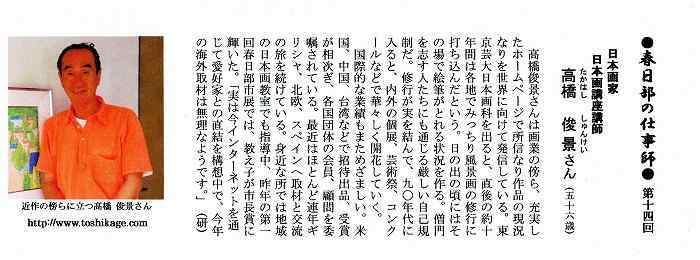 ●春日部の仕事師● 第十四回
日本画家
日本画講座講師
高橋 俊景さん(五十六歳)
たかはし しゅんけい
高橋俊景さんは画業の傍ら、充実し
たホームページで所信なり作品の現況
なりを世界に向けて発信している。東
京芸大日本画科を出ると、直後の約十
年間は各地でみっちり風景画の修行に
打ち込んだという。日の出の頃にはそ
の場で絵筆がとれる状況を作る。僧門
を志す人たちにも通じる厳しい自己規
制だ。修行が実を結んで、九〇年代に
入ると、内外の個展、芸術祭、コンク
ールなどで華々しく開花していく。
国際的な業績もまためざましい。米
国、中国、台湾などで招待出品、受賞
が相次ぎ、各国団体の会員、顧問を委
嘱されている。最近はほとんど連年ギ
リシャ、北欧、スペインへ取材と交流
の旅を続けている。身近な所では地域
の日本画教室でも指導中、昨年の第一
回春日部市展では、教え子が市長賞に
輝いた。「実は今インターネットを通
じて愛好家との直結を構想中で、今年
の海外取材は無理なようです。」(研)
近作の傍らに立つ高橋 俊景さん
http://www.toshikage.com